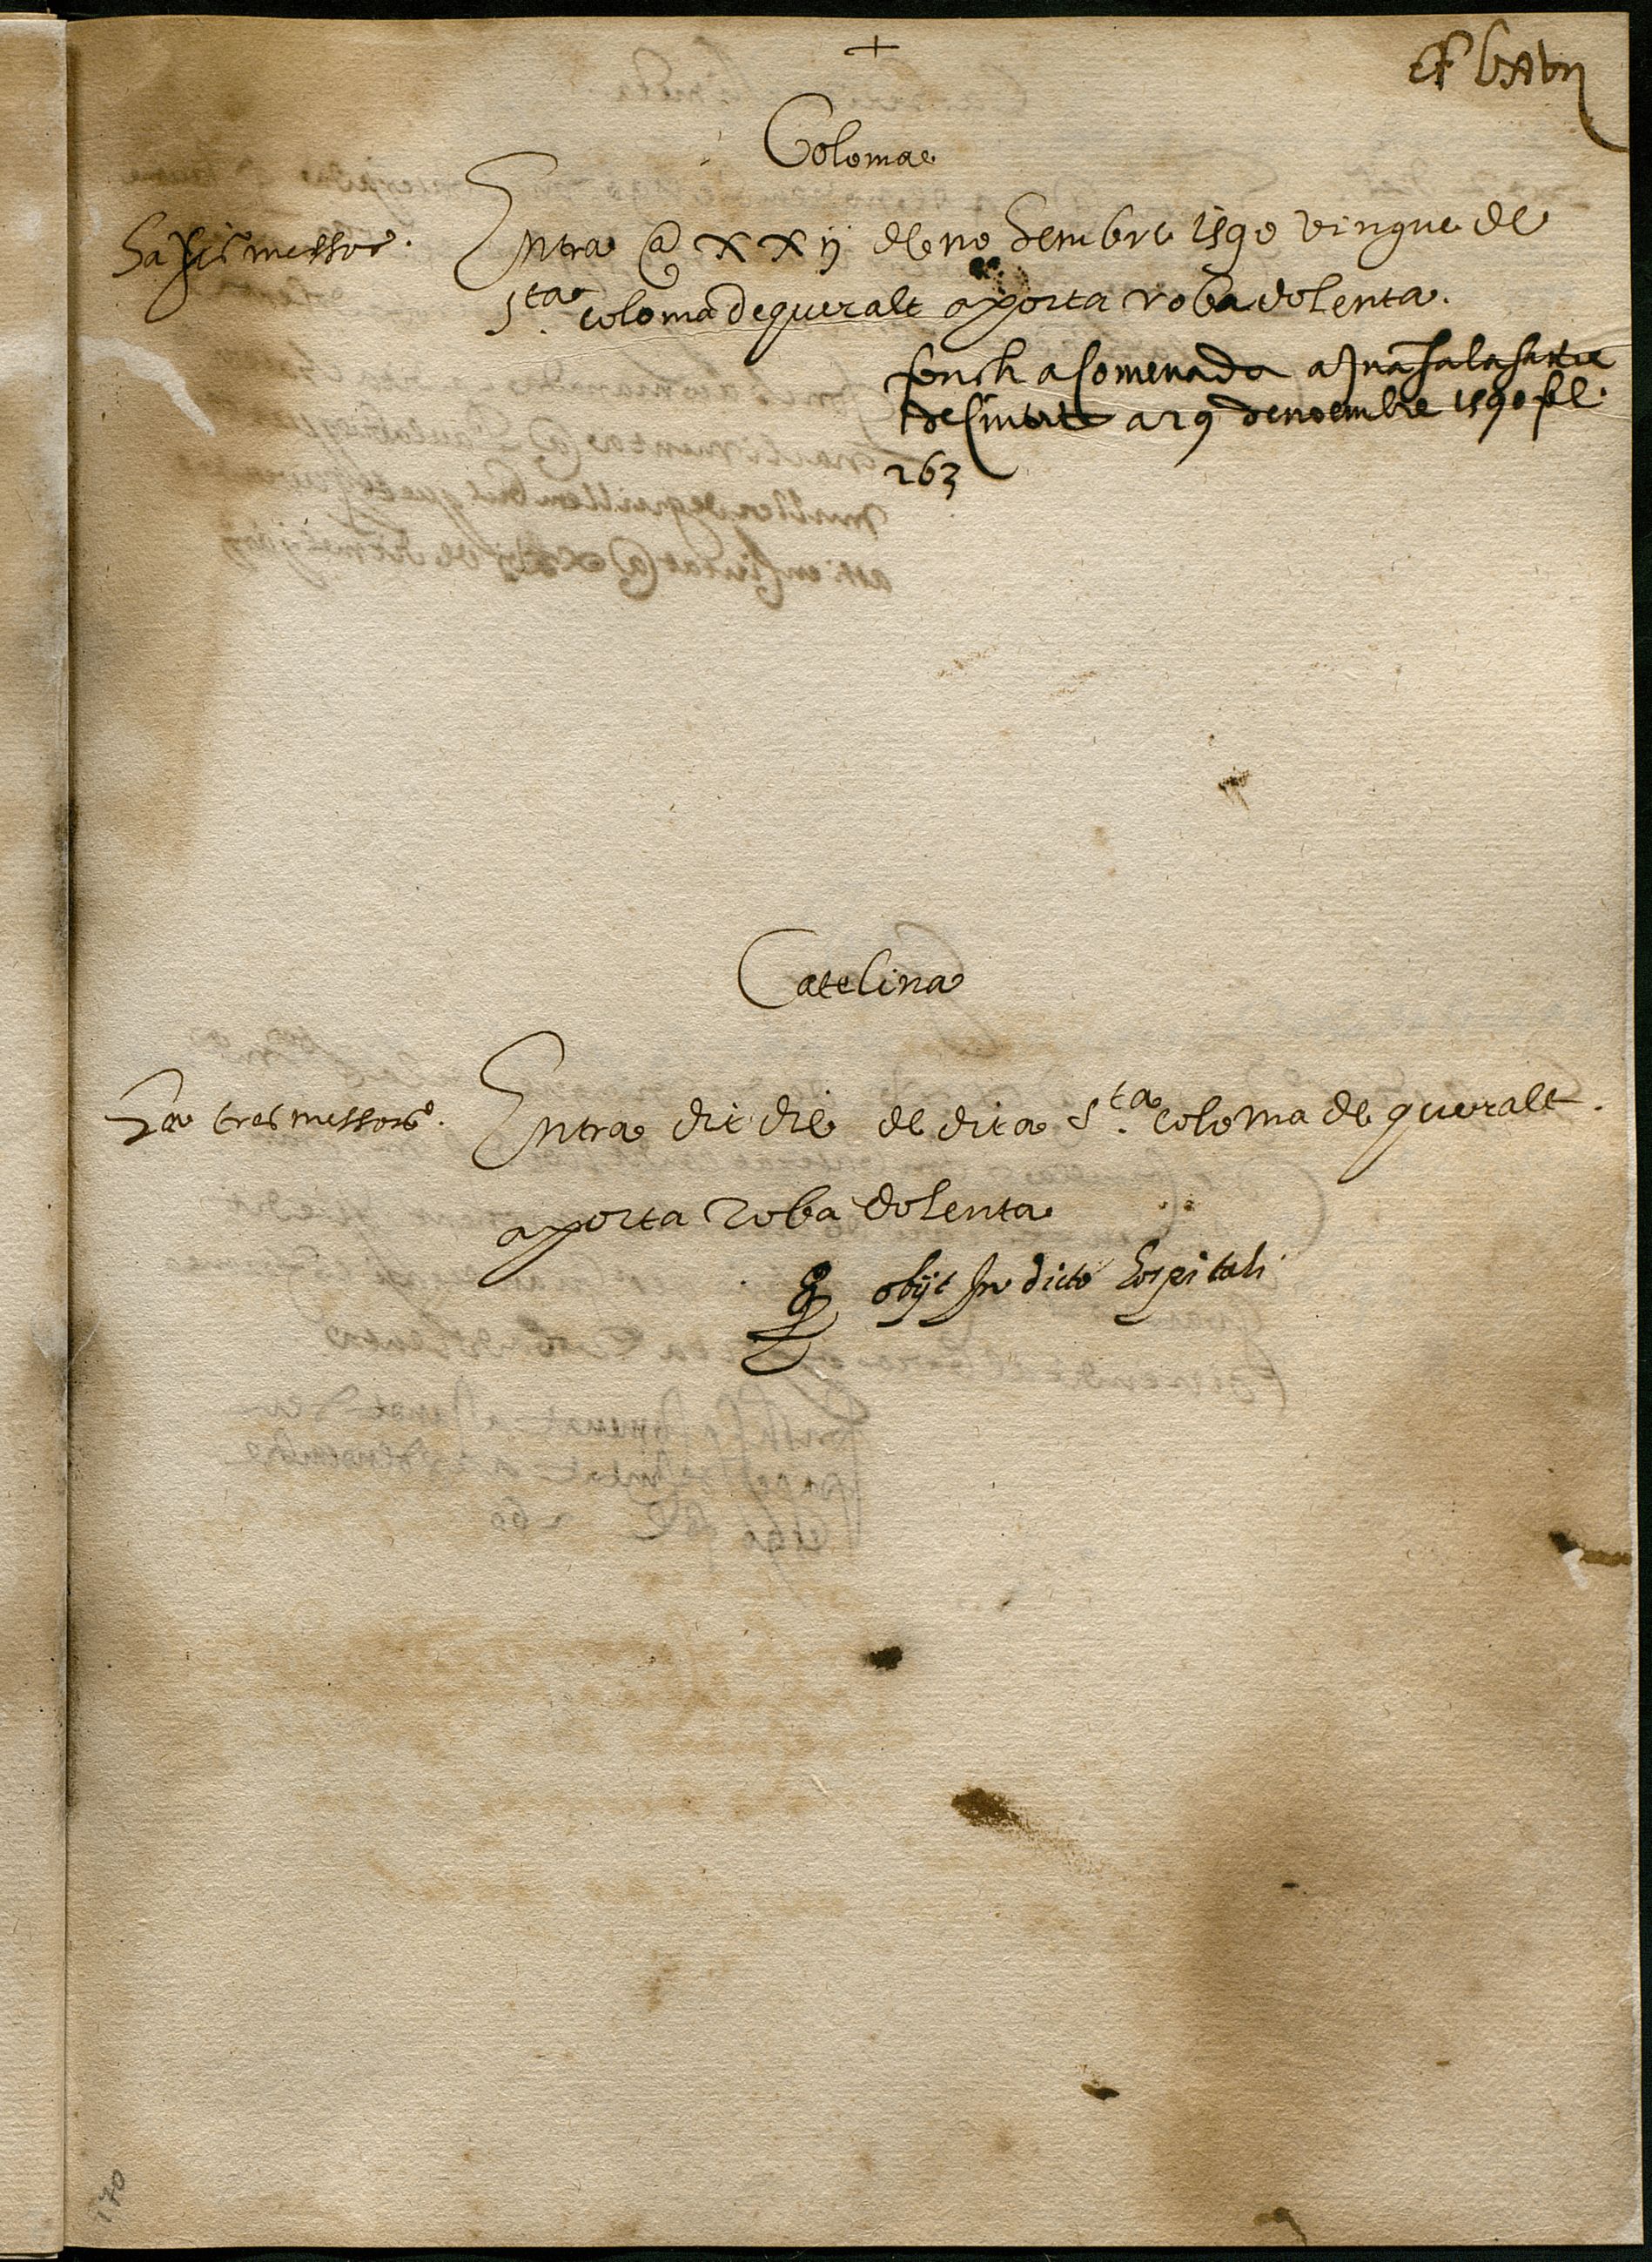 +
Coloma
Ha sis messos.
Entra @ xxij de nohembre 1590 vingue de
Sta. coloma de queralt aporta roba dolenta.
fonch acomenada a Juā sala sastre
de Ciutat a 29 de noembre 1590 fol.
263
Catelina
Ha tres messos.
Entra dit die de dita Sta. coloma de queralt.
aporta roba dolenta
obijt In dicto hospitali
170